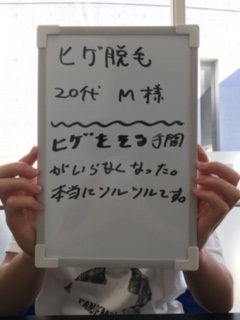 ヒゲ脱毛
20代 M様
ヒゲをそる手間
がいらなくなった。
本当にツルツルです。